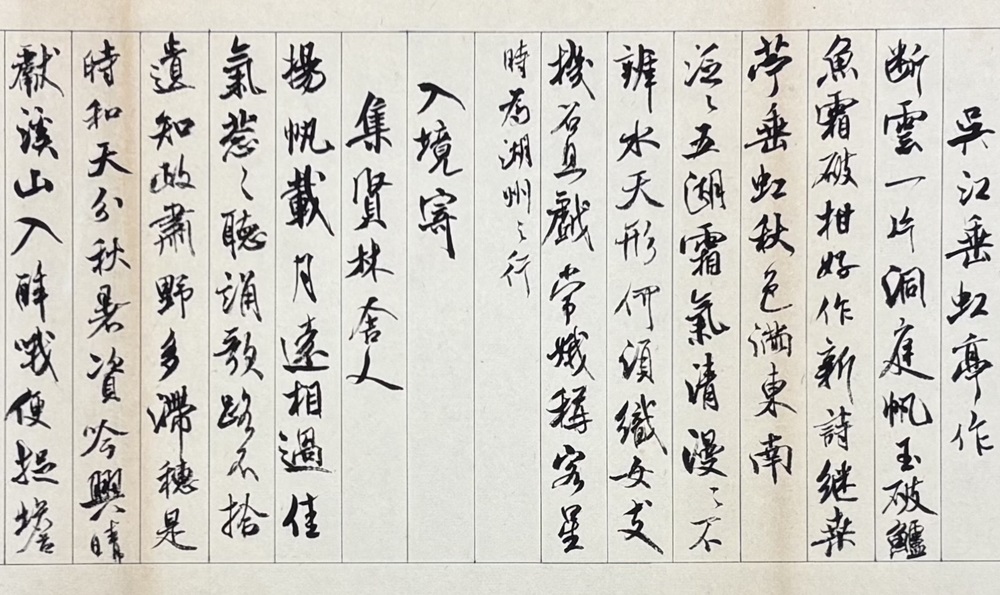 吳江垂虹亭作
断雲一片洞庭帆玉破鱸
魚霜破柑好作新詩継桑
苧垂虹秋色満東南
泛〻五湖霜氣清漫〻不
辨水天形何須織女支
機石且戲常娥稱客星
時為湖州之行
入境寄
集賢林舍人
揚帆載月遠相過佳
氣葱〻聽誦歌路不拾
遺知政肅野多滯穗是
時和天分秋暑資吟興晴
獻溪山入醉哦便捉蟾